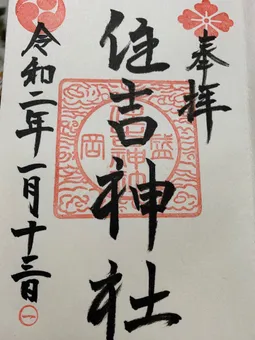 奉拝
住吉神社
盛岡
令和二年一月十三日